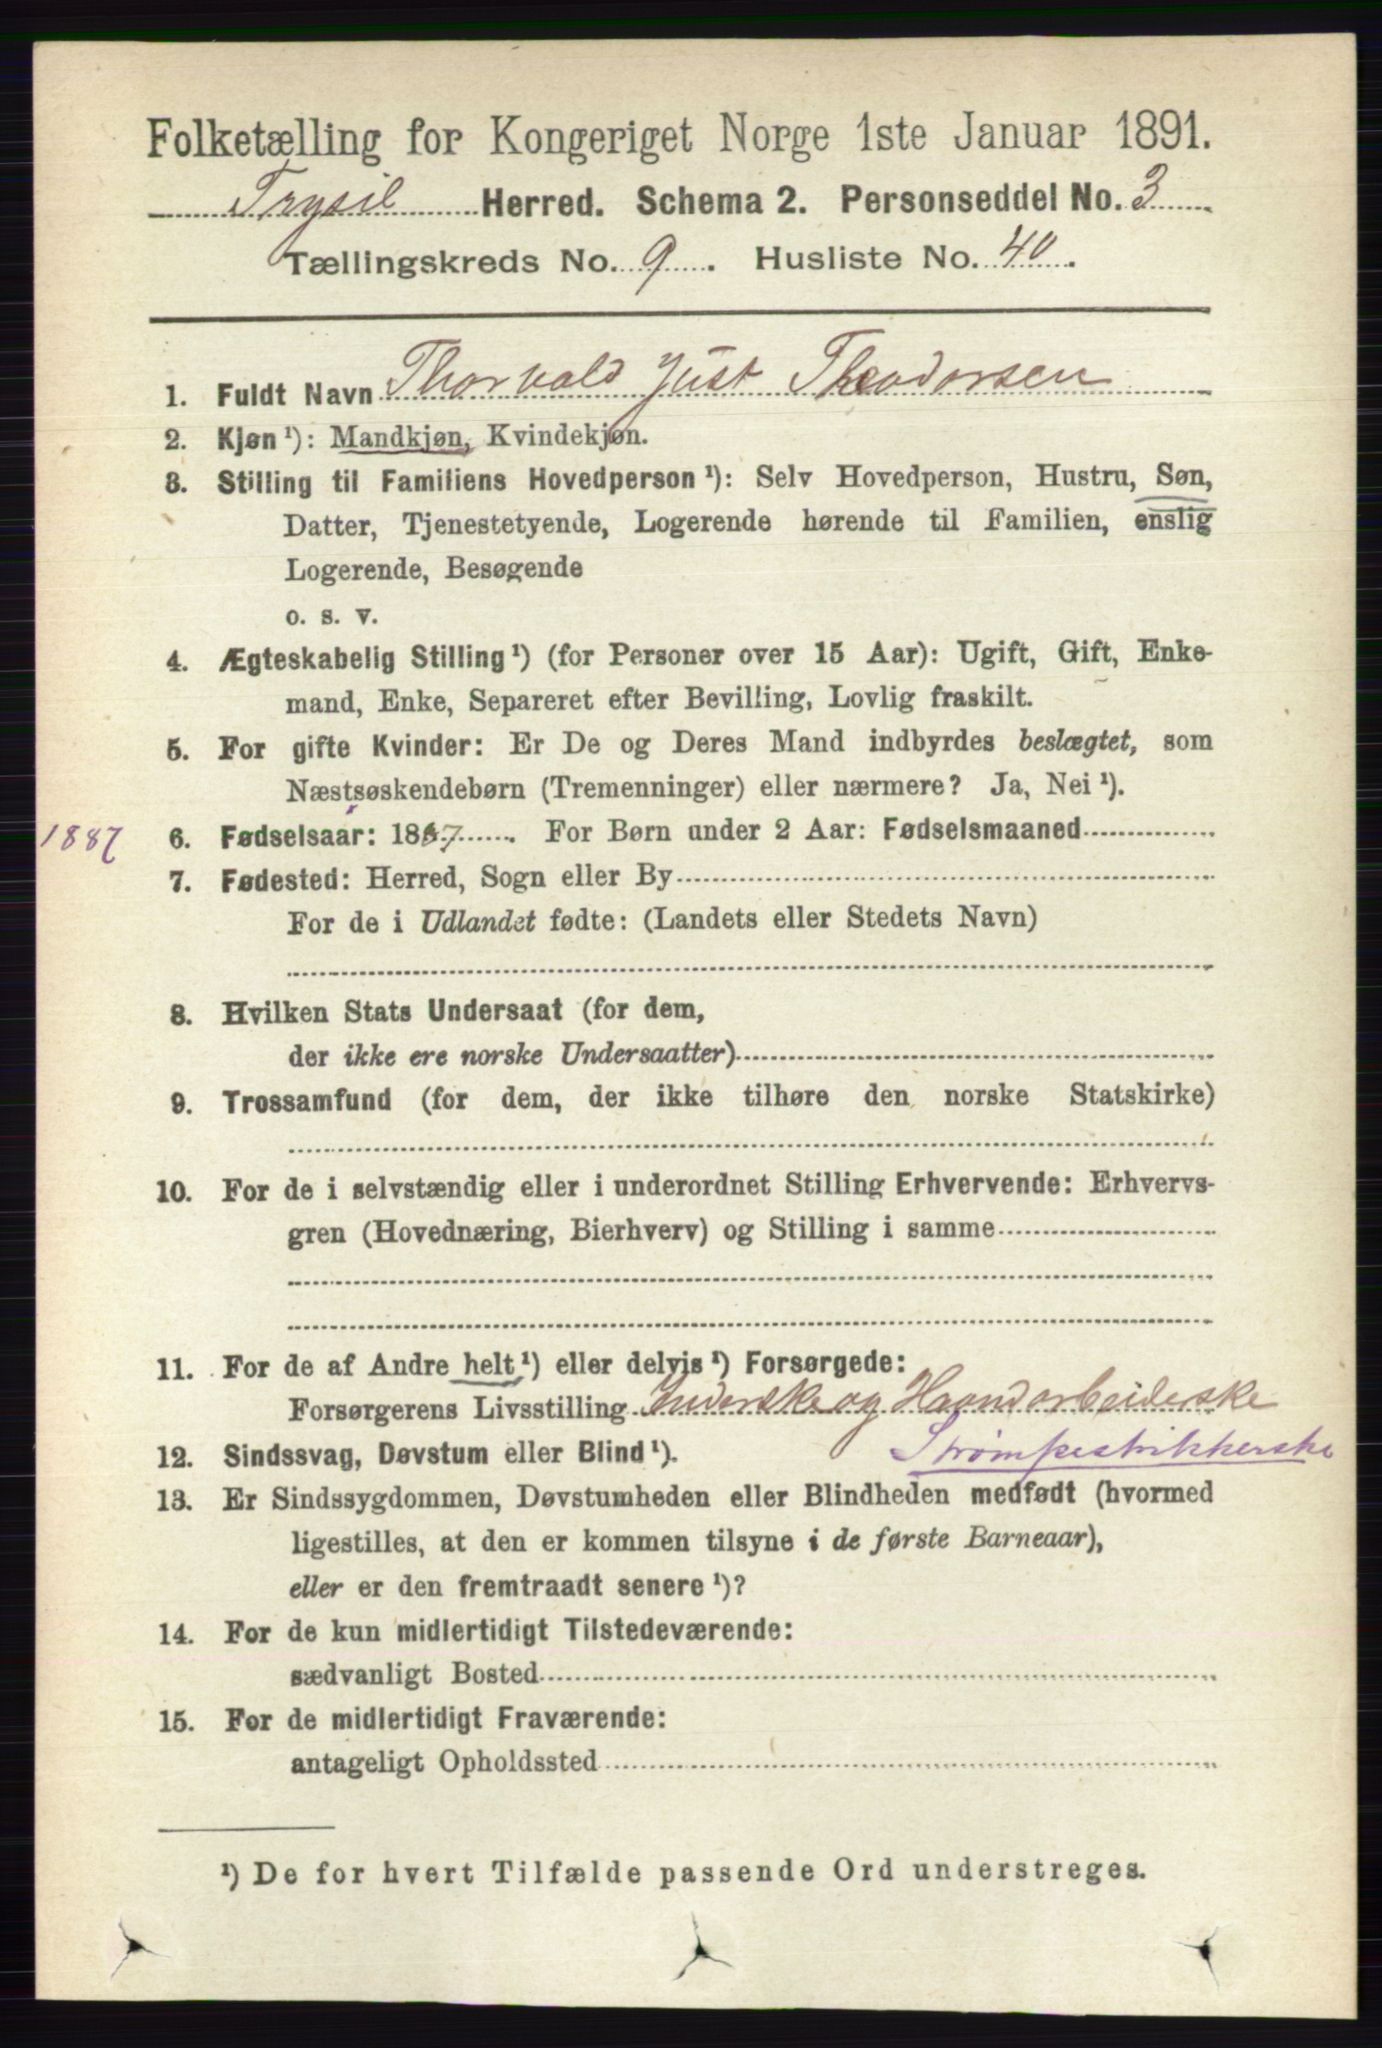 Folketælling for Kongeriget Norge 1ste Januar 1891.
Trysil Herred. Schema 2. Personseddel No. 3
Tællingskreds No. 9. Husliste No. 40.
1. Fuldt Navn Thorvald Just Theodorsen
2. Kjøn ¹): Mandkjøn, Kvindekjøn.
3. Stilling til Familiens Hovedperson ¹): Selv Hovedperson, Hustru, Søn,
Datter, Tjenestetyende, Logerende hørende til Familien, enslig
Logerende, Besøgende
o. s. v.
4. Ægteskabelig Stilling ¹) (for Personer over 15 Aar): Ugift, Gift, Enke-
mand, Enke, Separeret efter Bevilling, Lovlig fraskilt.
5. For gifte Kvinder: Er De og Deres Mand indbyrdes beslægtet, som
Næstsøskendebørn (Tremenninger) eller nærmere? Ja, Nei ¹).
1887 6. Fødselsaar: 1887. For Børn under 2 Aar: Fødselsmaaned
7. Fødested: Herred, Sogn eller By
For de i Udlandet fødte: (Landets eller Stedets Navn)
8. Hvilken Stats Undersaat (for dem,
der ikke ere norske Undersaatter)
9. Trossamfund (for dem, der ikke tilhøre den norske Statskirke)
10. For de i selvstændig eller i underordnet Stilling Erhvervende: Erhvervs-
gren (Hovednæring, Bierhverv) og Stilling i samme
11. For de af Andre helt ¹) eller delvis ¹) Forsørgede:
Forsørgerens Livsstilling og Haandarbeiderske
Strømpestrikkerske
12. Sindssvag, Døvstum eller Blind ¹).
13. Er Sindssygdommen, Døvstumheden eller Blindheden medfødt (hvormed
ligestilles, at den er kommen tilsyne i de første Barneaar),
eller er den fremtraadt senere ¹)?
14. For de kun midlertidigt Tilstedeværende:
sædvanligt Bosted
15. For de midlertidigt Fraværende:
antageligt Opholdssted
¹) De for hvert Tilfælde passende Ord understreges.